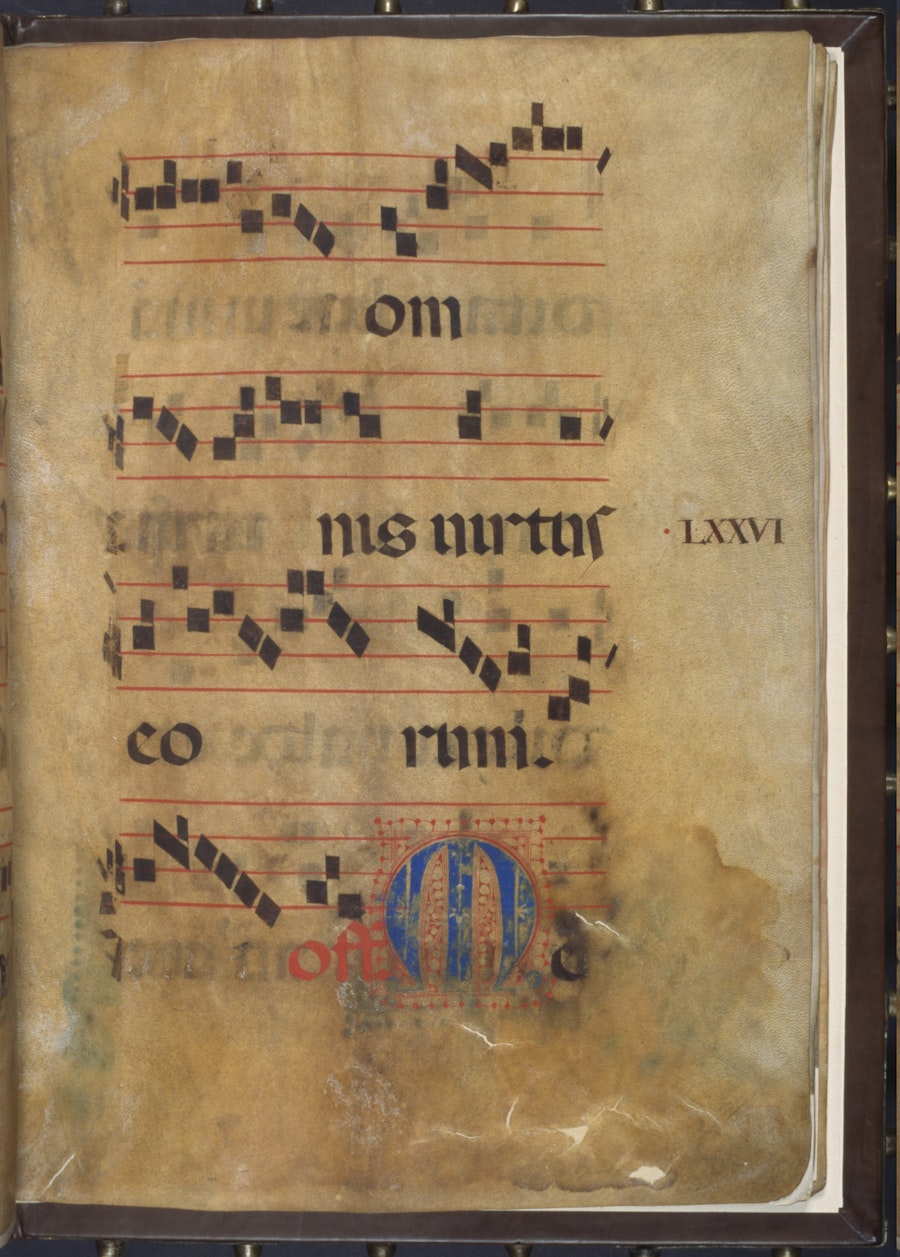 om
nis uirtus
LXXVI
eo rum.
off M d